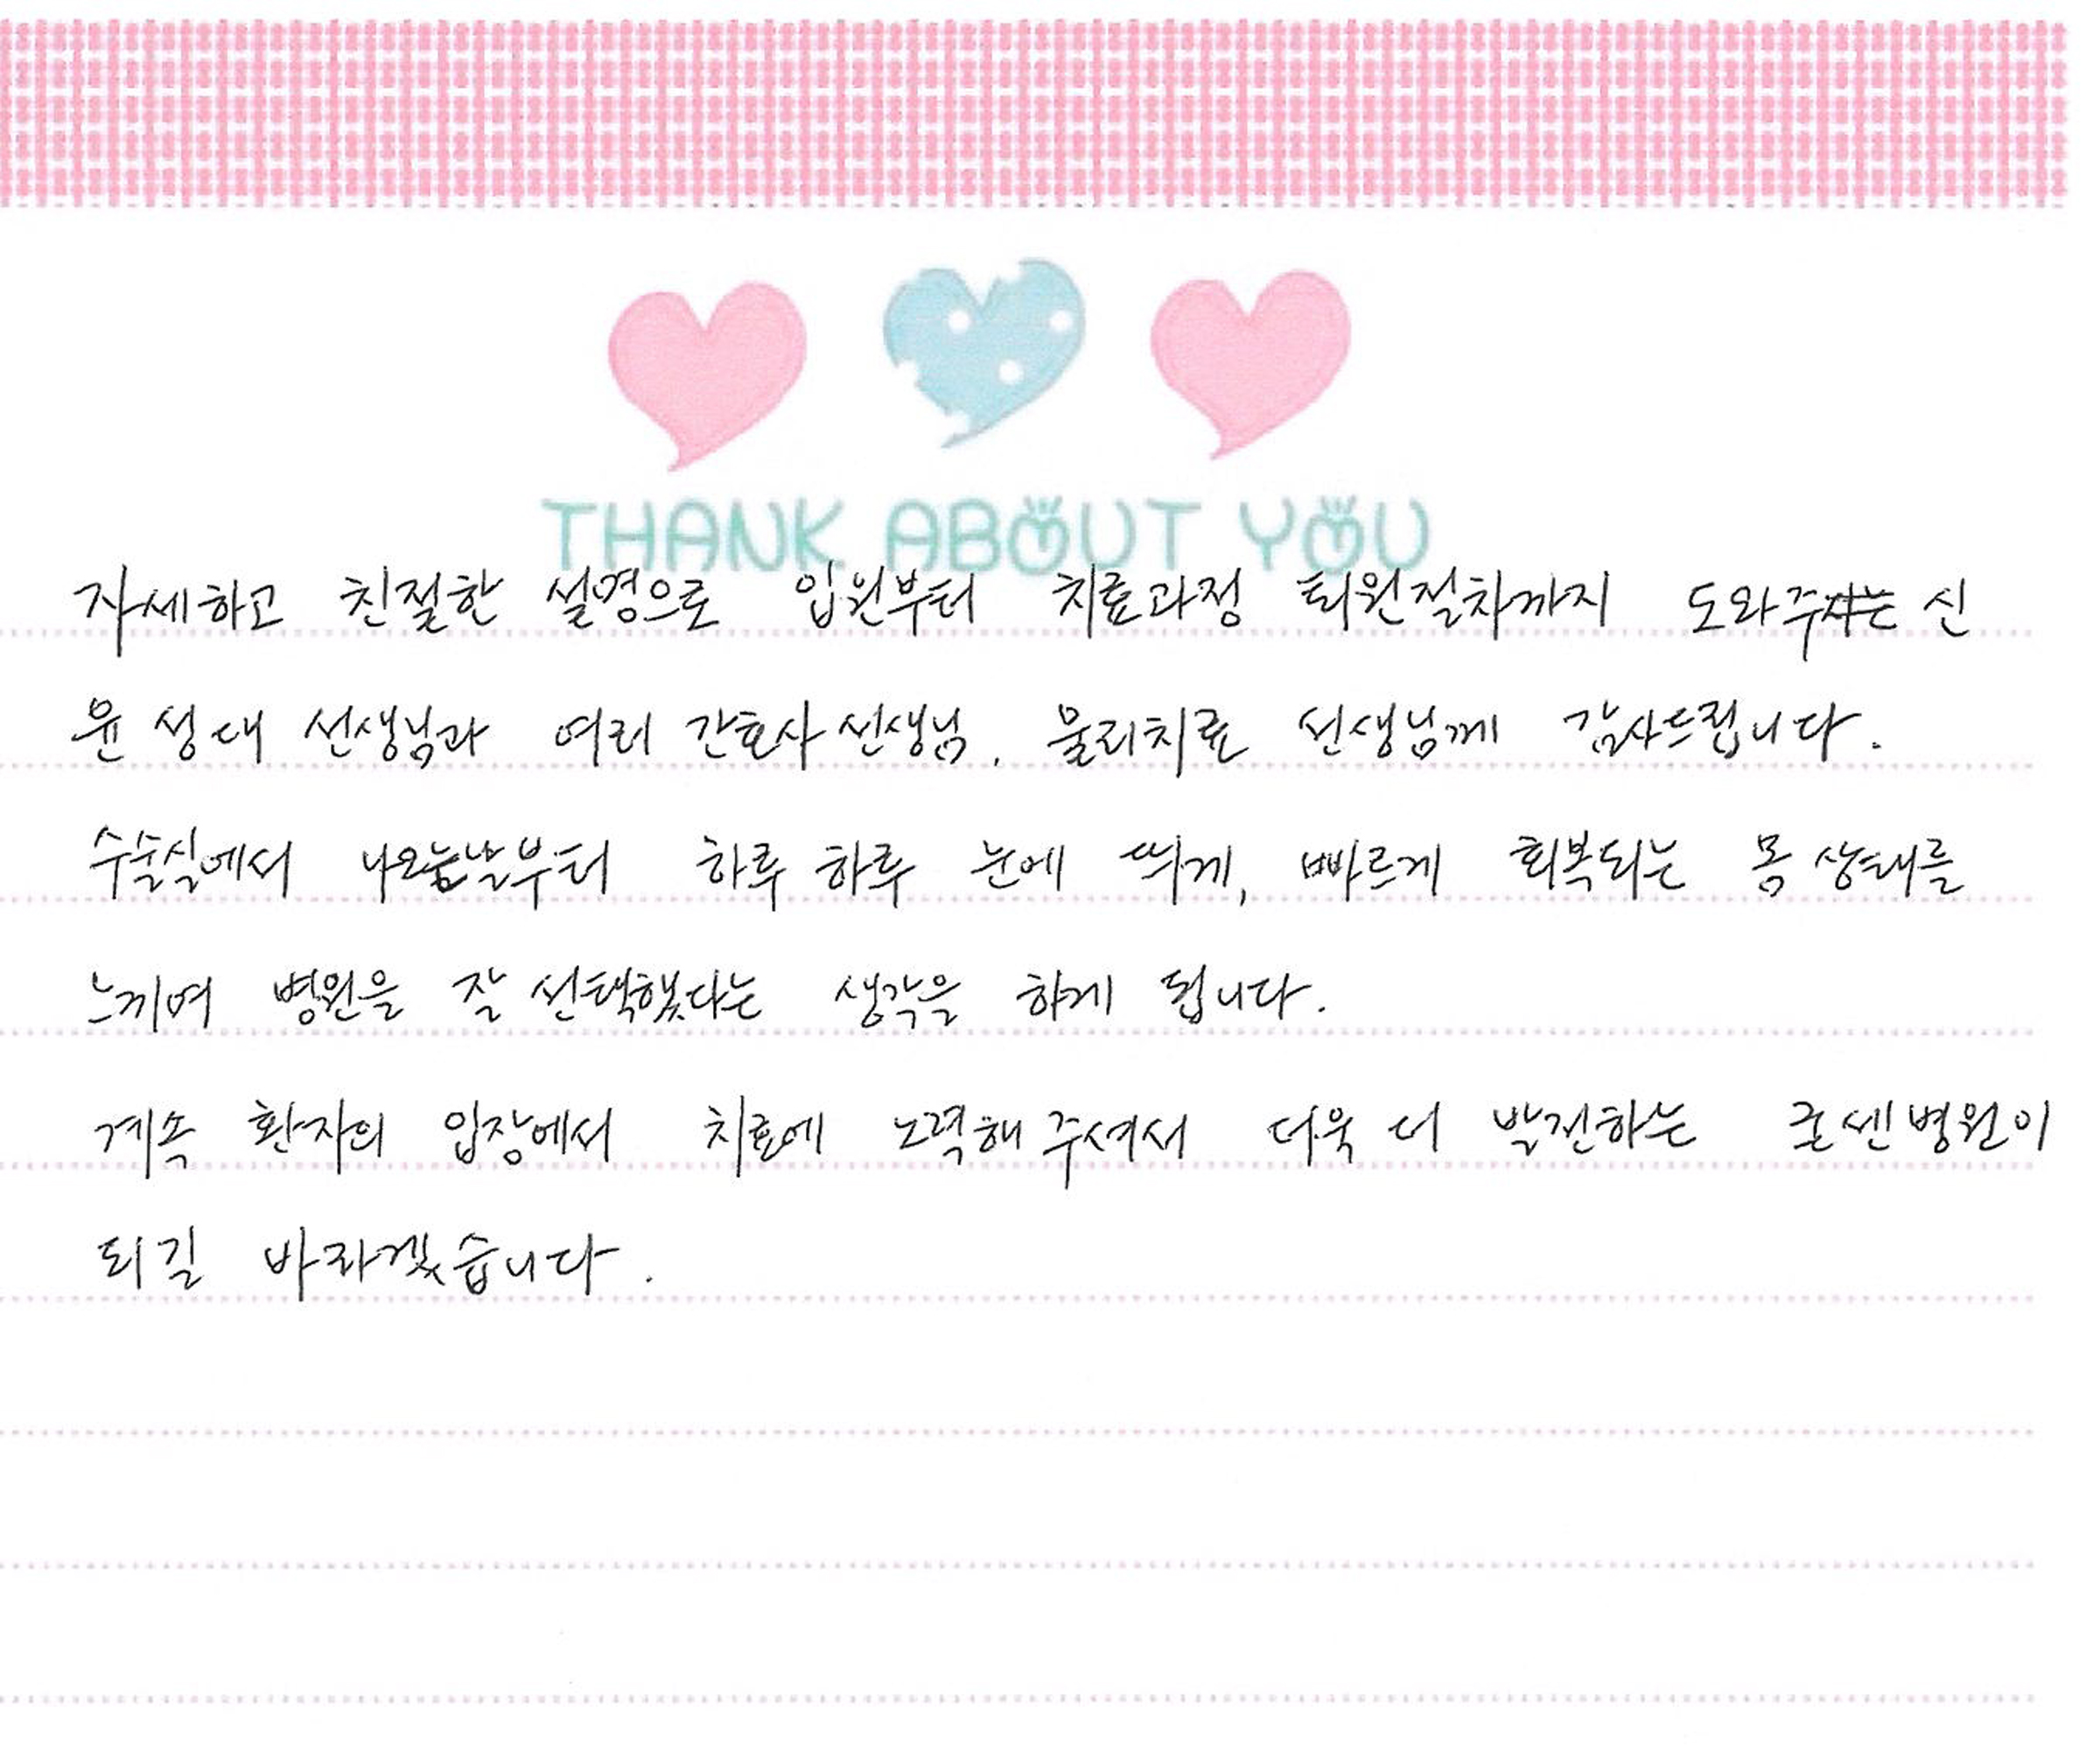 THANK ABOUT YOU
자세하고 친절한 설명으로 입원부터 치료과정 퇴원절차까지 도와주신
윤성대 선생님과 여러 간호사 선생님, 물리치료 선생님께 감사드립니다.
수술실에서 나오는날부터 하루 하루 눈에 띄게, 빠르게 회복되는 몸 상태를
느끼며 병원을 잘 선택했다는 생각을 하게 됩니다.
계속 환자의 입장에서 치료에 노력해 주셔서 더욱 더 발전하는 굳센병원이
되길 바라겠습니다.